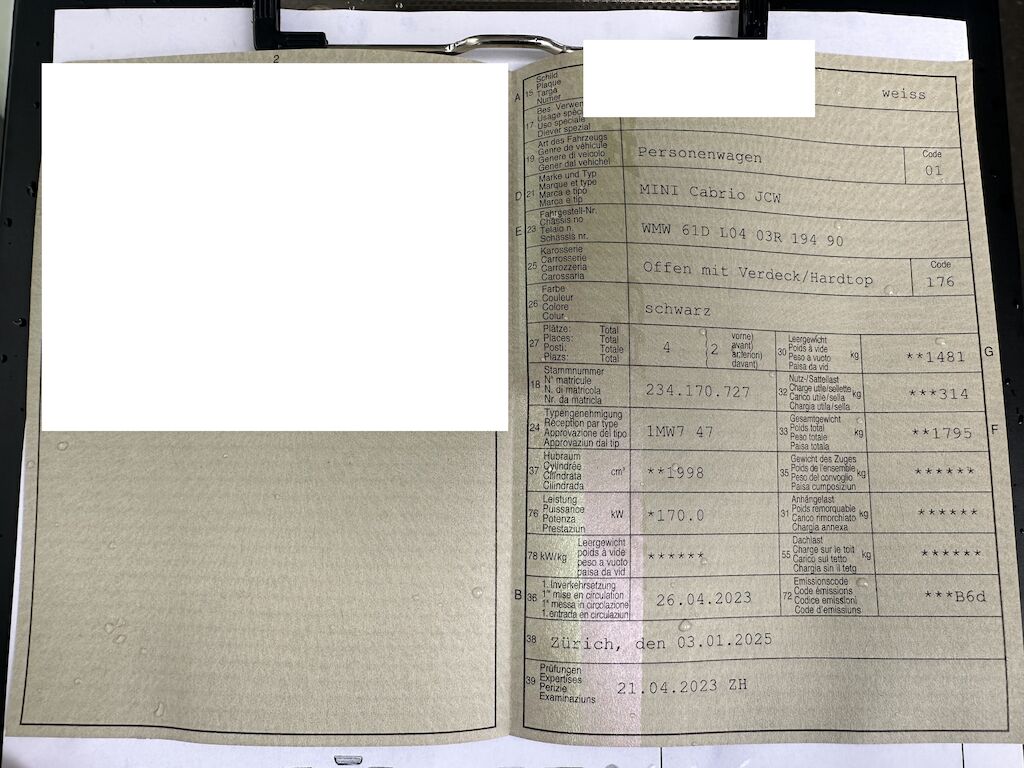 2
A 15 Schild
Plaque
Targa
Numer
weiss
17 Bes. Verwen
Usage spéc
Uso speciale
Diever spezial
19 Art des Fahrzeugs
Genre de véhicule
Genere di veicolo
Gener dal vehichel
Personenwagen
Code
01
D 21 Marke und Typ
Marque et type
Marca e tipo
Marca e tip
MINI Cabrio JCW
E 23 Fahrgestell-Nr.
Châssis no
Telaio n.
Schassis nr.
WMW 61D L04 03R 194 90
25 Karosserie
Carrosserie
Carrozzeria
Carossaria
Offen mit Verdeck/Hardtop
Code
176
26 Farbe
Couleur
Colore
Colur
schwarz
27 Plätze: Total
Places: Total
Posti: Totale
Plazs: Total
4
2
vorne)
avant)
anteriori)
davant)
30 Leergewicht
Poids à vide
Peso a vuoto
Paisa da vid
kg
**1481
G
18 Stammnummer
N° matricule
N. di matricola
Nr. da matricla
234.170.727
32 Nutz-/Sattellast
Charge utile/sellette
Carico utile/sella
Chargia utila/sella
kg
***314
24 Typengenehmigung
Réception par type
Approvazione del tipo
Approvaziun dal tip
1MW7 47
33 Gesamtgewicht
Poids total
Peso totale
Paisa totala
kg
**1795
F
37 Hubraum
Cylindrée
Cilindrata
Cilindrada
cm³
**1998
35 Gewicht des Zuges
Poids de l'ensemble
Peso del convoglio
Paisa cumposiziun
kg
******
76 Leistung
Puissance
Potenza
Prestaziun
kW
*170.0
31 Anhängelast
Poids remorquable
Carico rimorchiato
Chargia annexa
kg
******
78 kW/kg
Leergewicht
poids à vide
peso a vuoto
paisa da vid
******
55 Dachlast
Charge sur le toit
Carico sul tetto
Chargia sin il tetg
kg
******
B 36 1. Inverkehrsetzung
1re mise en circulation
1a messa in circolazione
1. entrada en circulaziun
26.04.2023
72 Emissionscode
Code émissions
Codice emissioni
Code d'emissiuns
***B6d
38 Zürich, den 03.01.2025
39 Prüfungen
Expertises
Perizie
Examinaziuns
21.04.2023 ZH